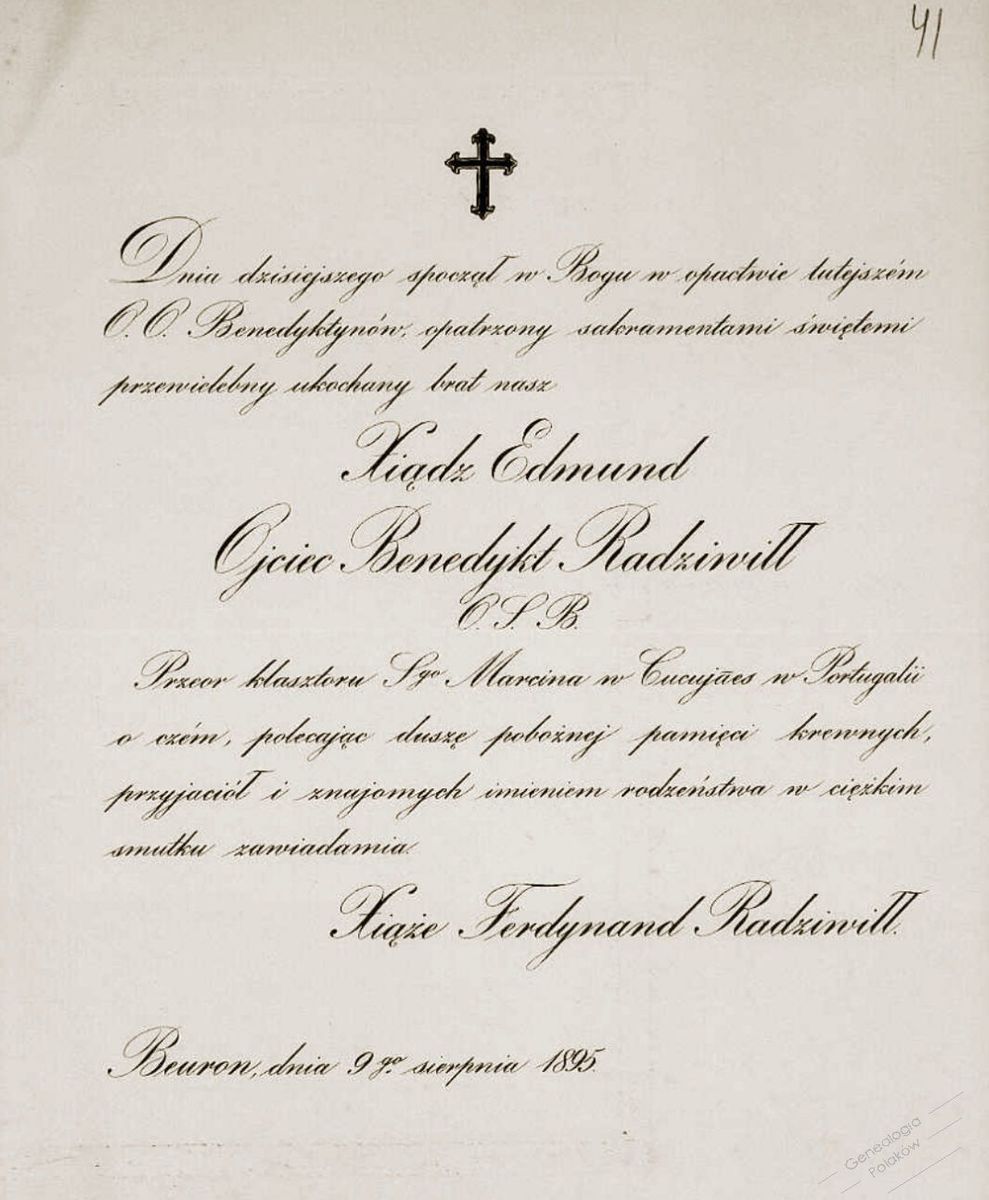 41
Dnia dzisiejszego spoczął w Bogu w opactwie tutejszém
O. O. Benedyktynów, opatrzony sakramentami świętemi
przewielebny ukochany brat nasz
Xiądz Edmund
Ojciec Benedykt Radziwiłł
O. S. B.
Przeor klasztoru Sgo Marcina w Cucujães w Portugalii
o czém, polecając duszę pobożnej pamięci krewnych,
przyjaciół i znajomych imieniem rodzeństwa w ciężkim
smutku zawiadamia.
Xiąże Ferdynand Radziwiłł.
Beuron, dnia 9go. sierpnia 1895.
Genealogia
Polaków